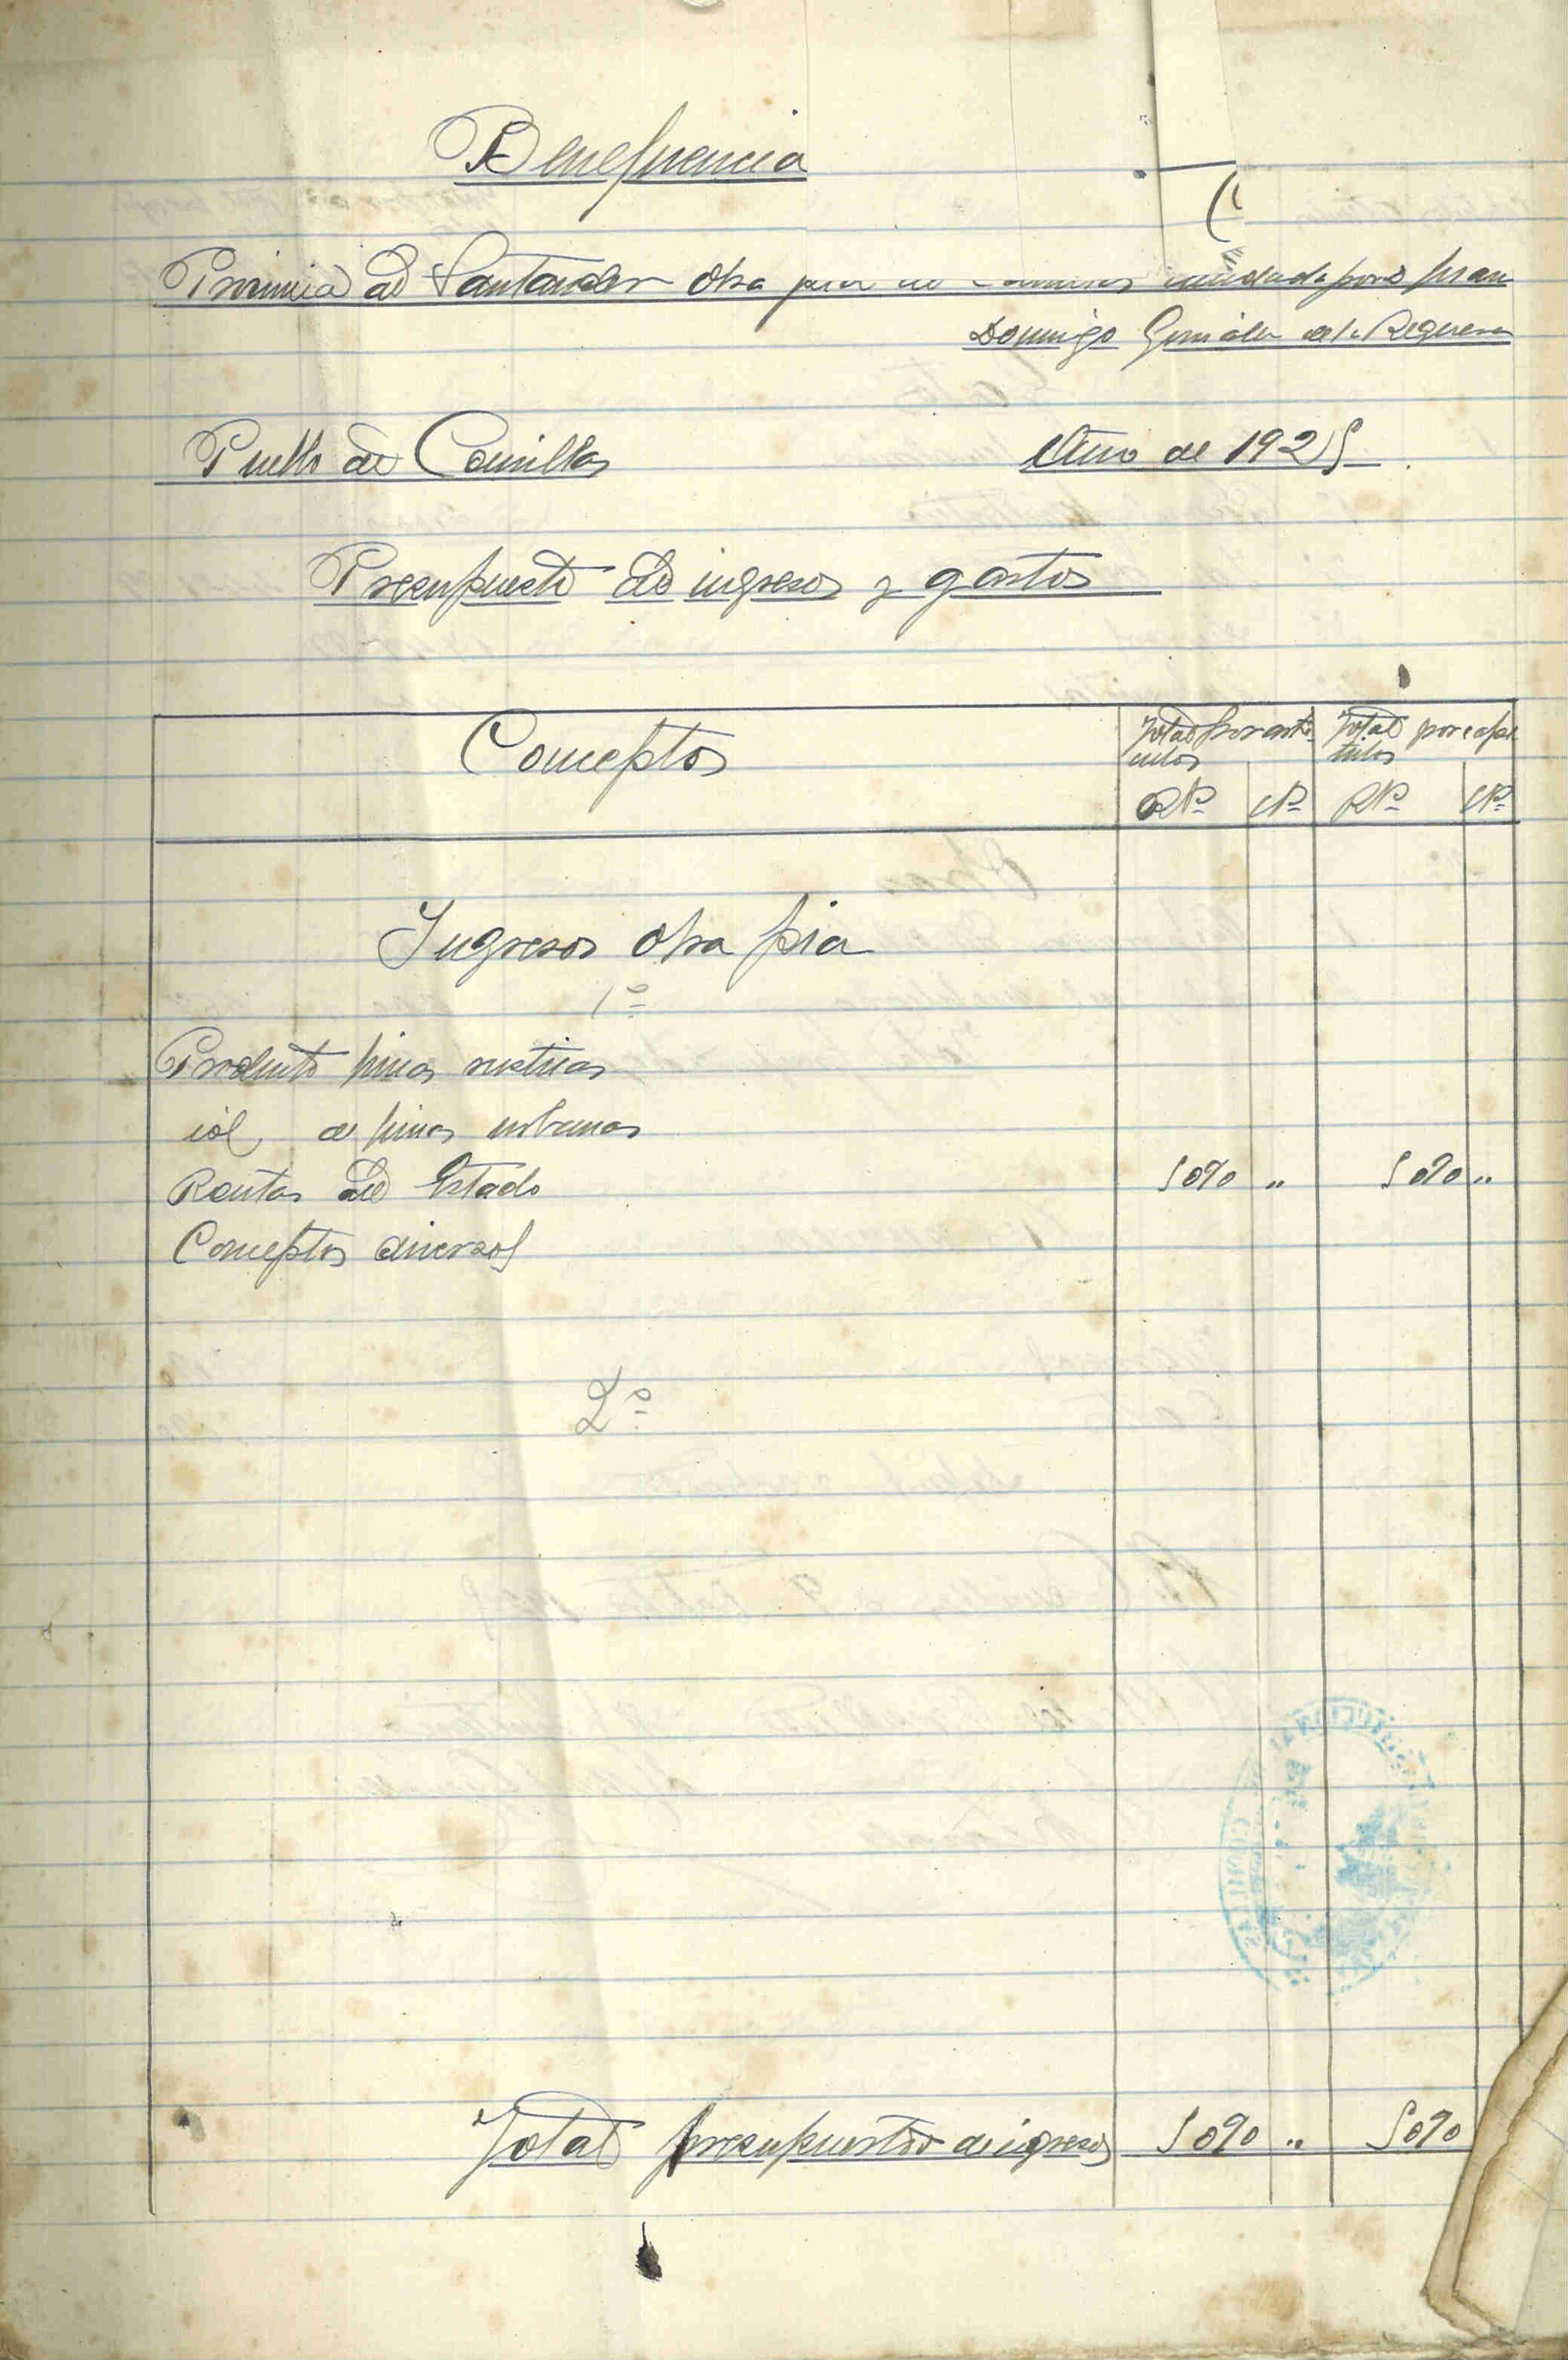 Beneficencia
Provincia de Santander Obra pia de Comillas fundada por D. Juan
Domingo González de la Reguera
Pueblo de Comillas Año de 1925
Presupuesto de ingresos y gastos
Conceptos
Total por artí-
culos
Total por capí
tulos
Pts Cts Pts Cts
Ingresos obra pia
1º
Producto fincas rusticas
id de fincas urbanas
Rentas del Estado 5090 " 5090 "
Conceptos diversos
2º
Total presupuesto de ingresos 5090 " 5090